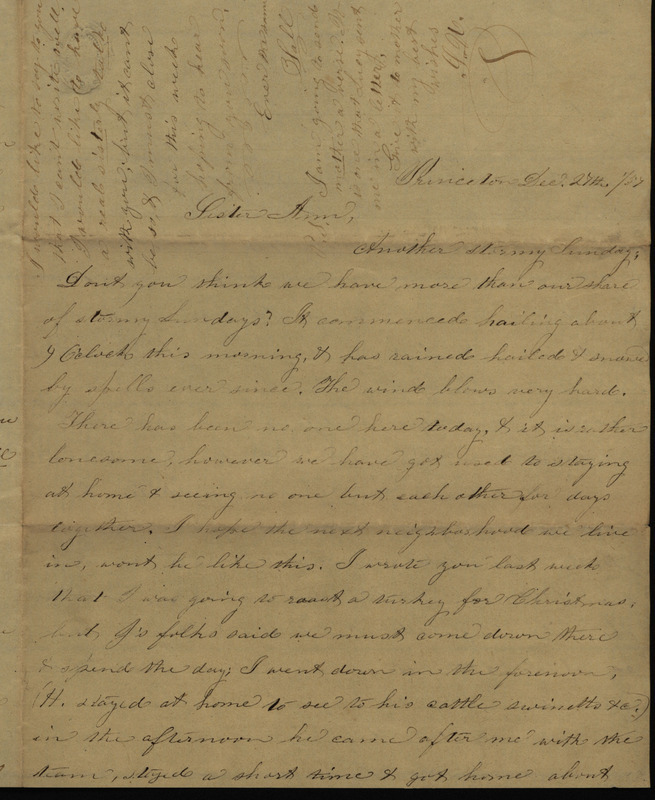 Princeton Dec. 27th /57
Sister Ann,
Another stormy Sunday,
Dont you think we have more than our share
of stormy Sundays? It commenced hailing about
9 Oclock this morning, & has rained hailed & snowed
by spells ever since. The wind blows very hard.
There has been no one here today, & it is rather
lonesome, however we have got used to staying
at home & seeing no one but each other for days
together. I hope the next neighborhood we live
in, wont be like this. I wrote you last week
that I was going to roast a turkey for Christmas,
but J's folks said we must come down there
& spend the day; I went down in the forenoon,
(H. stayed at home to see to his cattle swinetts &c.)
in the afternoon he came after me with the
team, stayed a short time & got home about
I would like to say to you
that I cant write well.
I would like to have
a real sisterly talk
with you, but it cant
be so, & I must close
for this week
hoping to hear
from you soon
Ever
I am going to send
mother a
one that Lucy sent
me in a letter,
Give it to mother
with my best
wishes